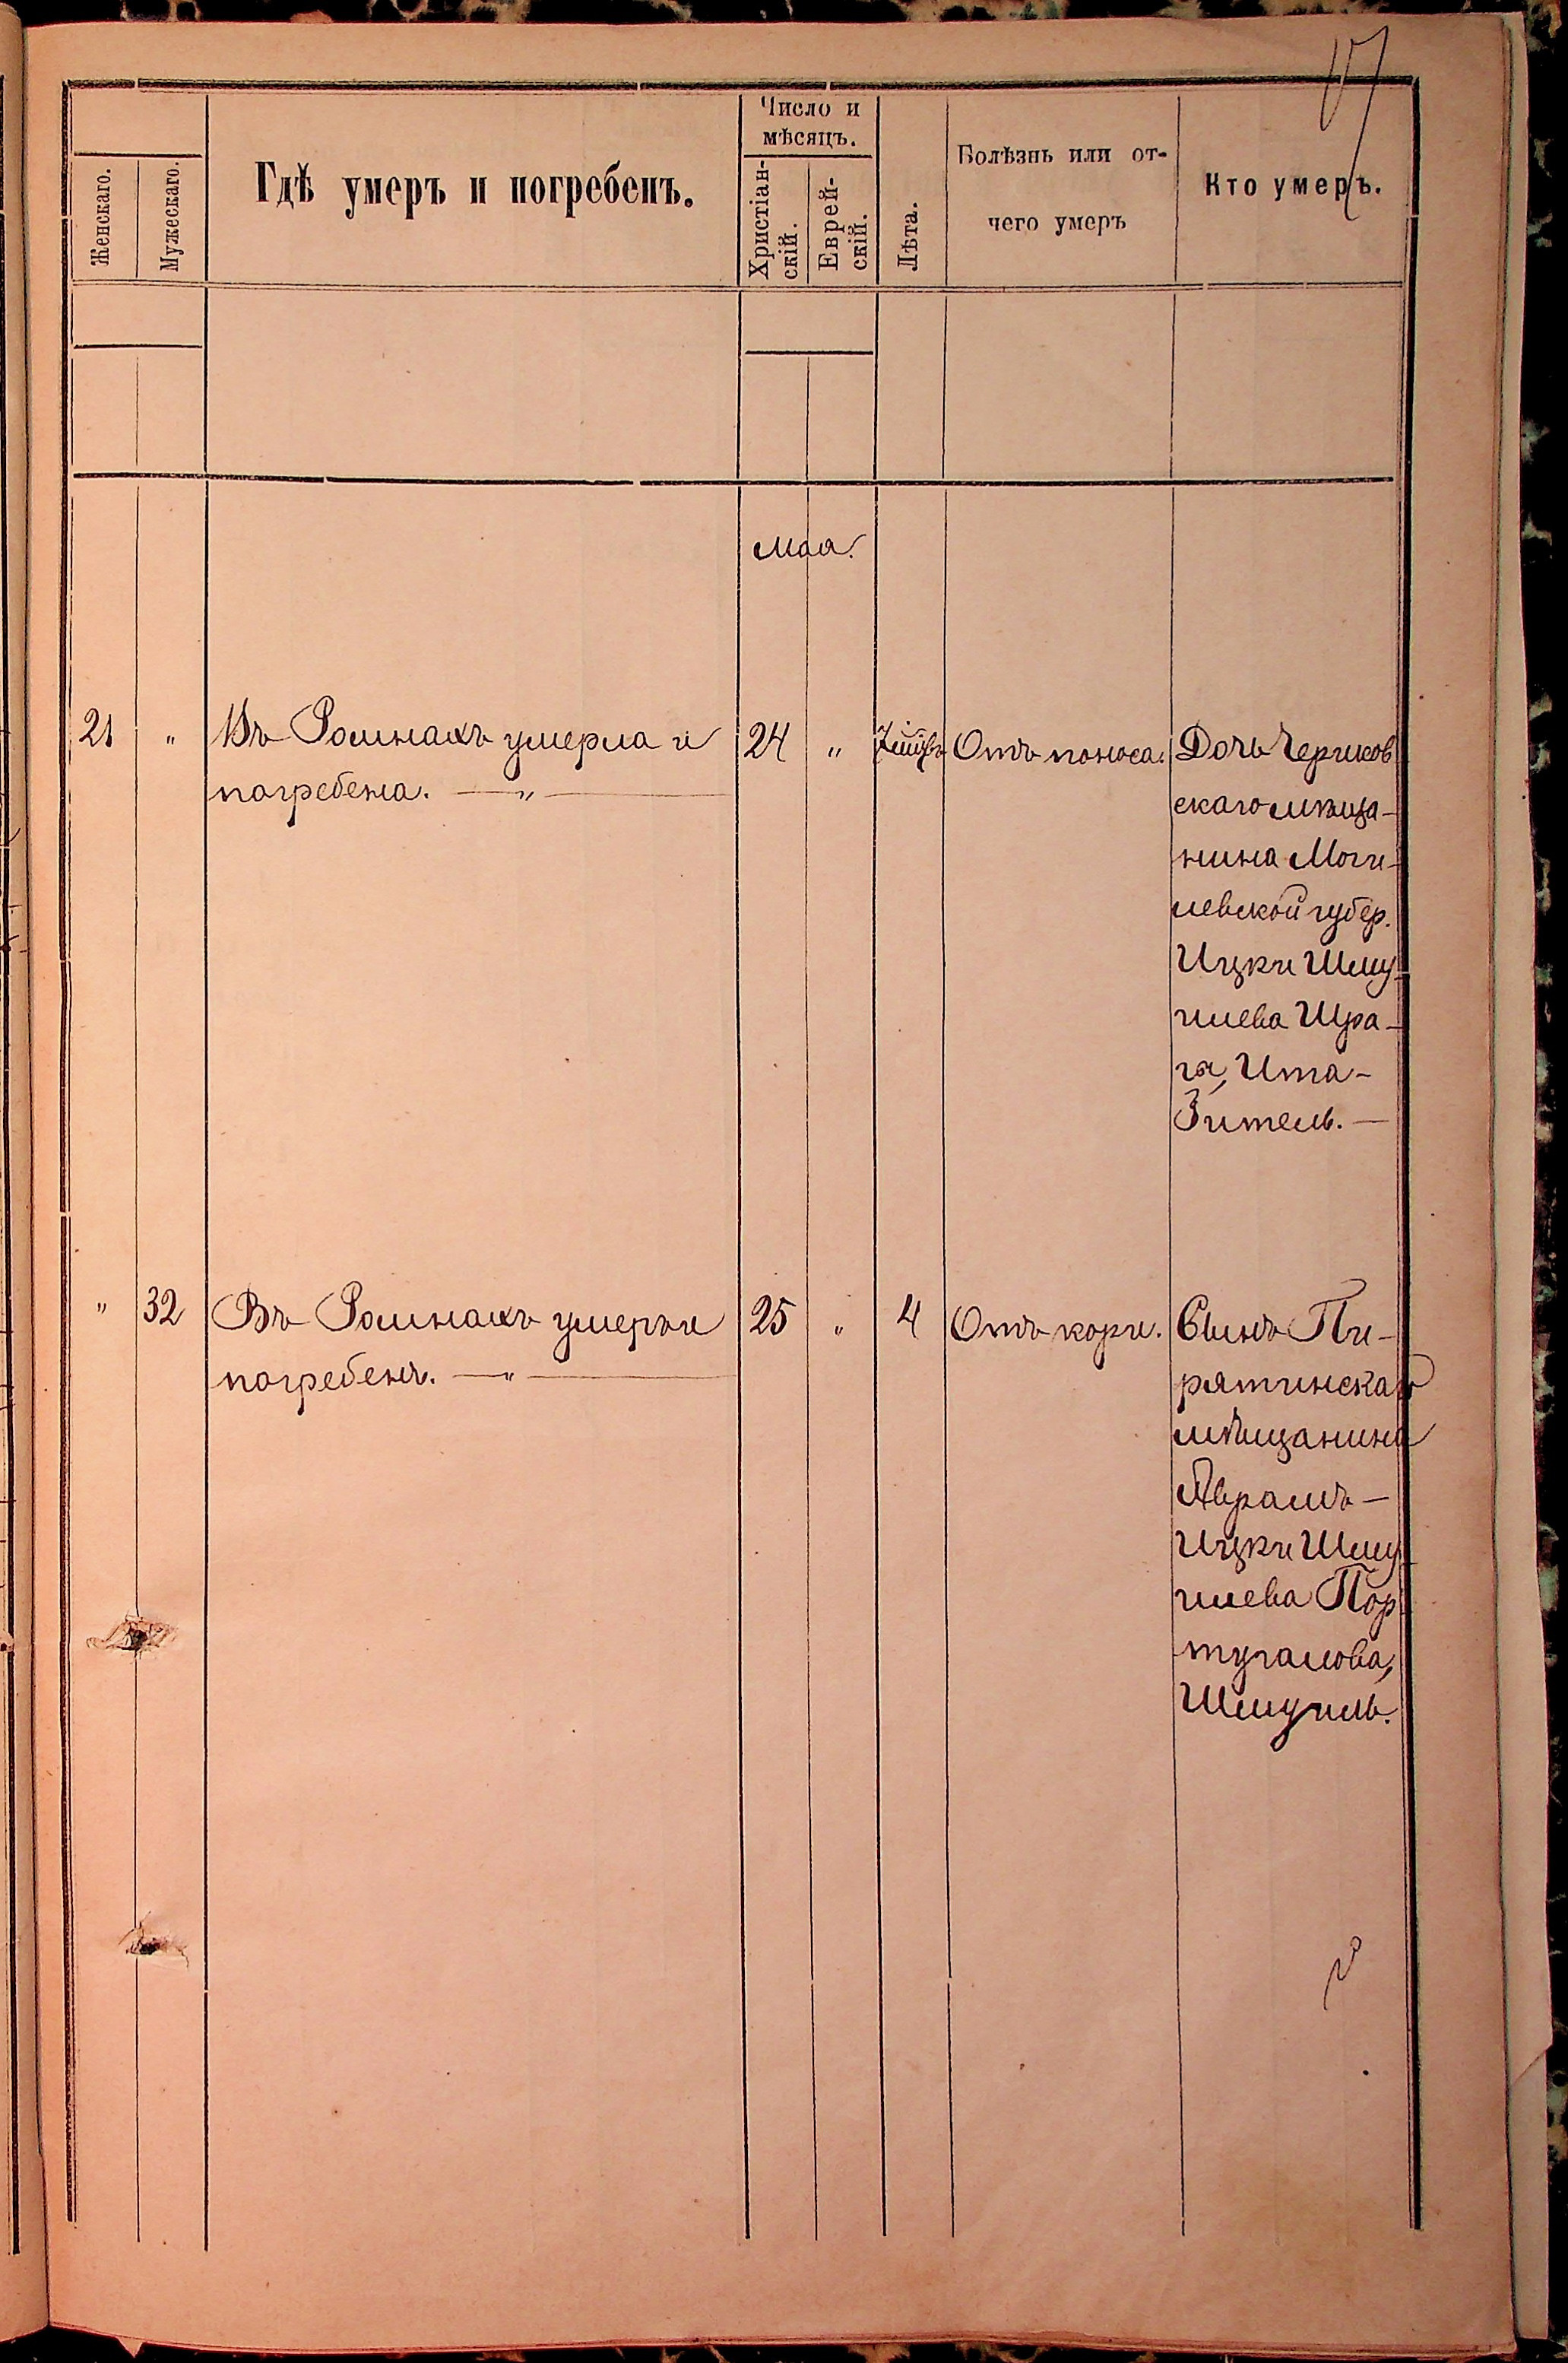 17
Женскаго.
Мужескаго.
Гдѣ умеръ и погребенъ.
Число и
мѣсяцъ.
Христіан-
скій.
Еврей-
скій.
Лѣта.
Болѣзнь или от-
чего умеръ
Кто умеръ.
Мая.
21 " Въ Ромнахъ умерла и 24 " Отъ поноса. Дочь Чериков
погребена. — " —
скаго мѣща-
нина Моги-
левской губер.
Ицки Шму-
илева Шра-
га, Ита-
Зитель. —
" 32 Въ Ромнахъ умеръ и 25 " 4 Отъ кори. Сынъ Пи-
погребенъ. — " —
рятинскаго
мѣщанина
Аврамъ —
Ицки Шму-
илева Пор
тугалова,
Шмуиль.